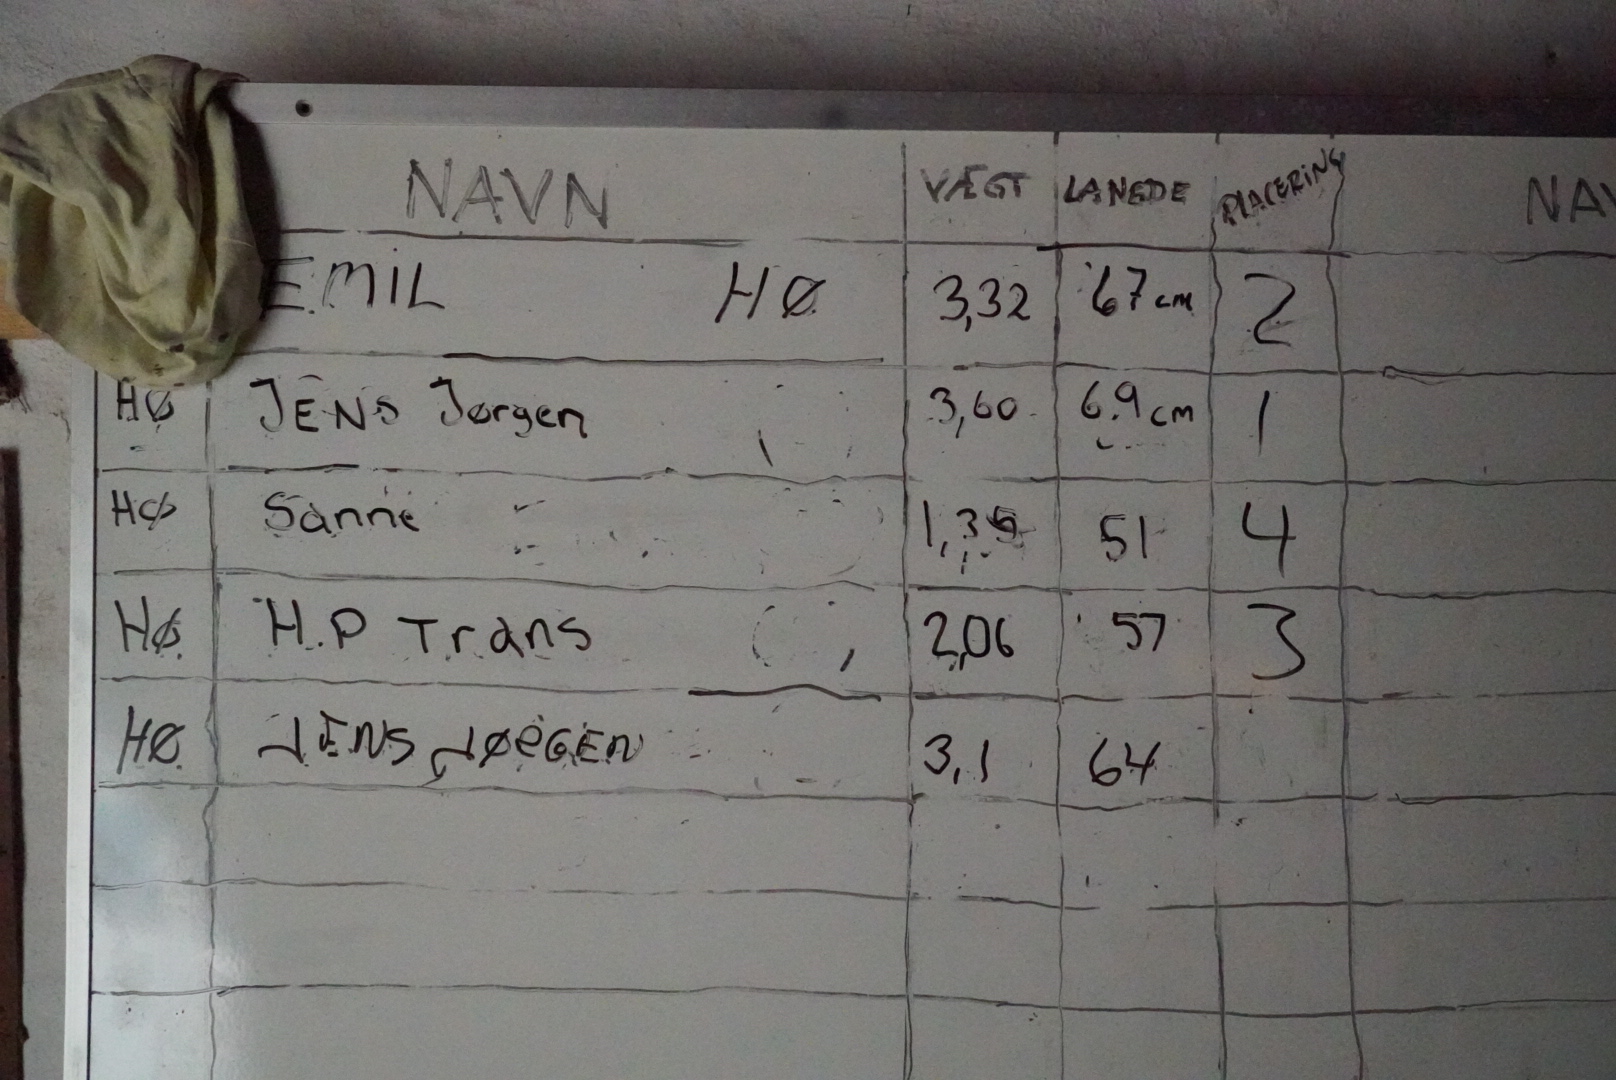 NAVN VÆGT LANGDE PLACERING NAV
EMIL HØ 3,32 67cm 2
HØ JENS Jørgen 3,60 6.9cm 1
HØ Sanne 1,35 51 4
HØ H.P Trans 2,06 57 3
HØ JENS JØRGEN 3,1 64